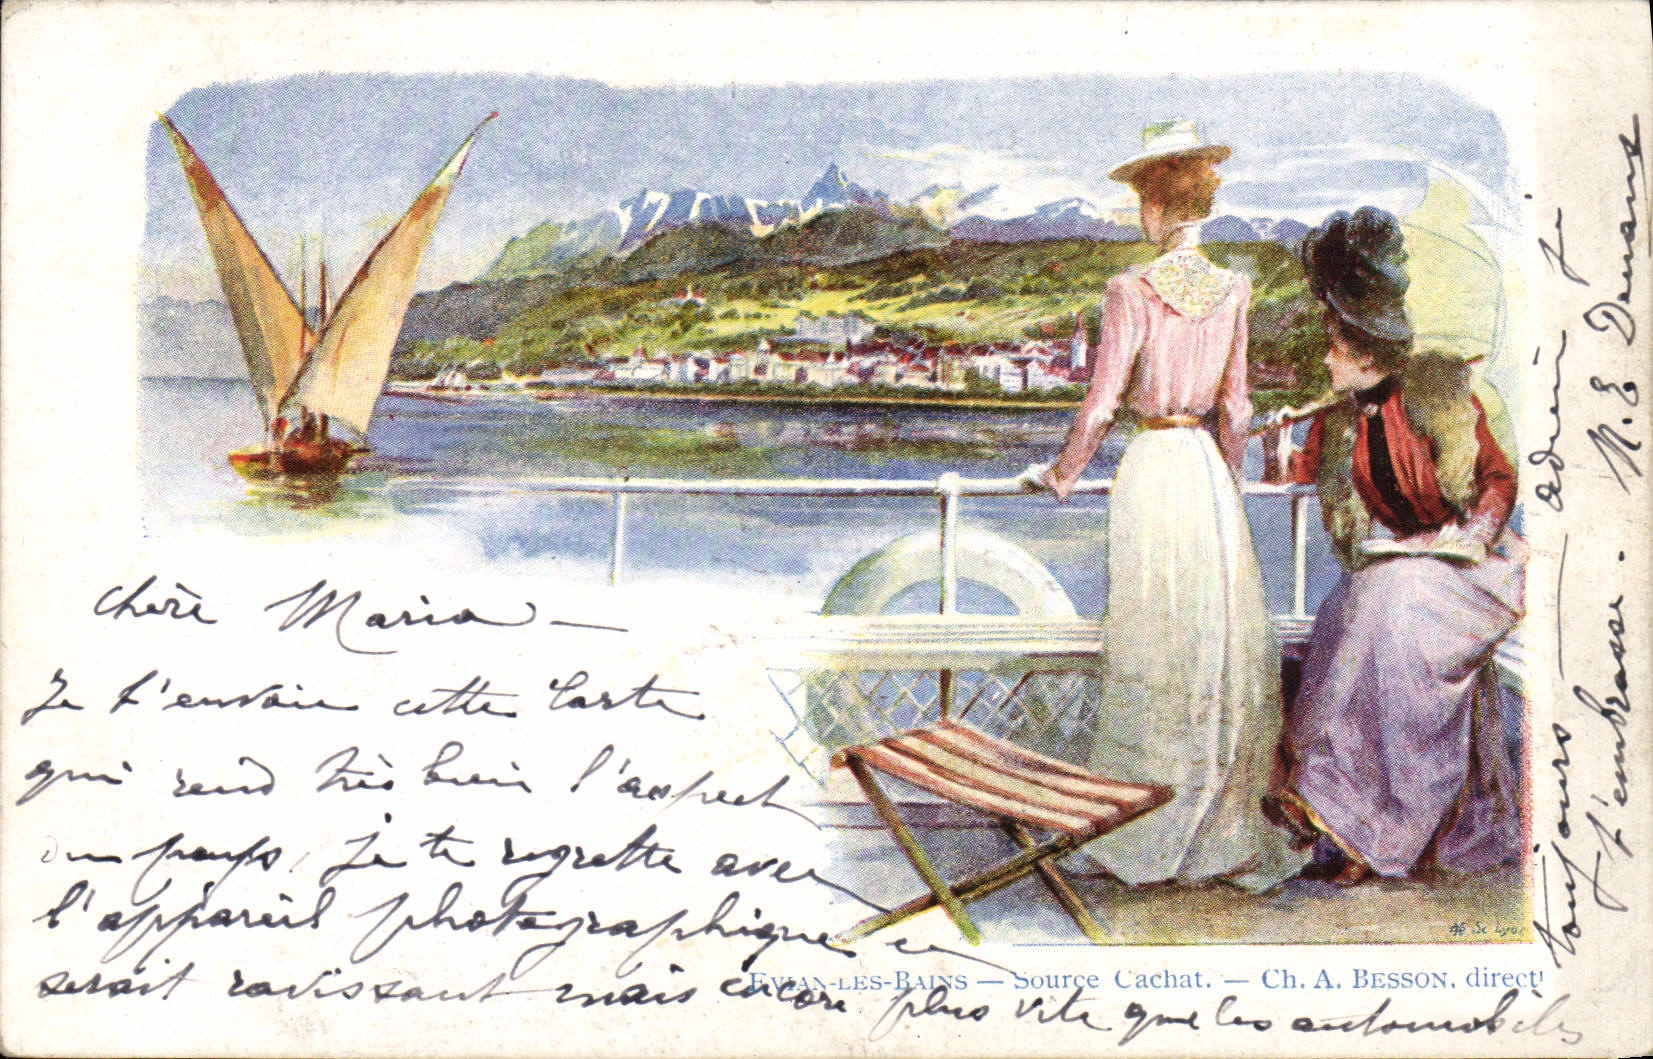 chère Maria —
Je t'envoie cette Carte
qui rend très bien l'aspect
du pays, je te regrette avec
l'appareil photographique ce
serait ravissant mais encore plus vite que les automobiles
EVIAN-LES-BAINS — Source Cachat. — Ch. A. BESSON, direct
toujours — adieu je
t'embrasse. M. E. Demans